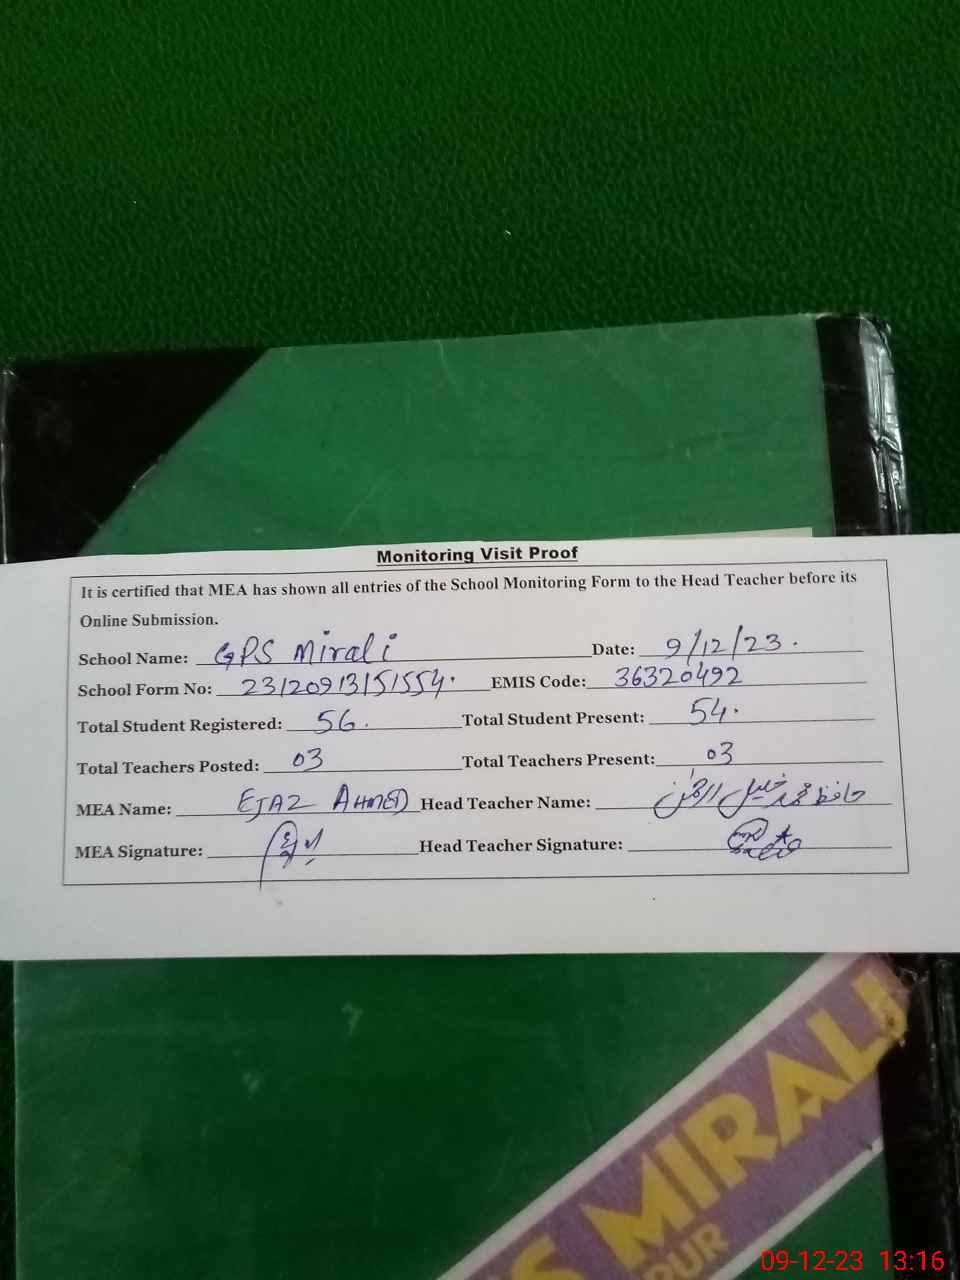 Monitoring Visit Proof
It is certified that MEA has shown all entries of the School Monitoring Form to the Head Teacher before its
Online Submission.
School Name: GPS Mirali Date: 9/12/23.
School Form No: 23120913151554. EMIS Code: 36320492
Total Student Registered: 56. Total Student Present: 54.
Total Teachers Posted: 03 Total Teachers Present: 03
MEA Name: EJAZ AHMED Head Teacher Name: حافظ محمد خلیل الرحمٰن
MEA Signature: Head Teacher Signature:
S MIRALI
PUR
09-12-23 13:16